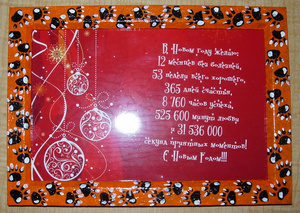 В Новом году желаю:
12 месяцев без болезней,
53 недели всего хорошего,
365 дней счастья,
8 760 часов успеха,
525 600 минут любви
и 31 536 000
секунд приятных моментов!
С Новым Годом!!!